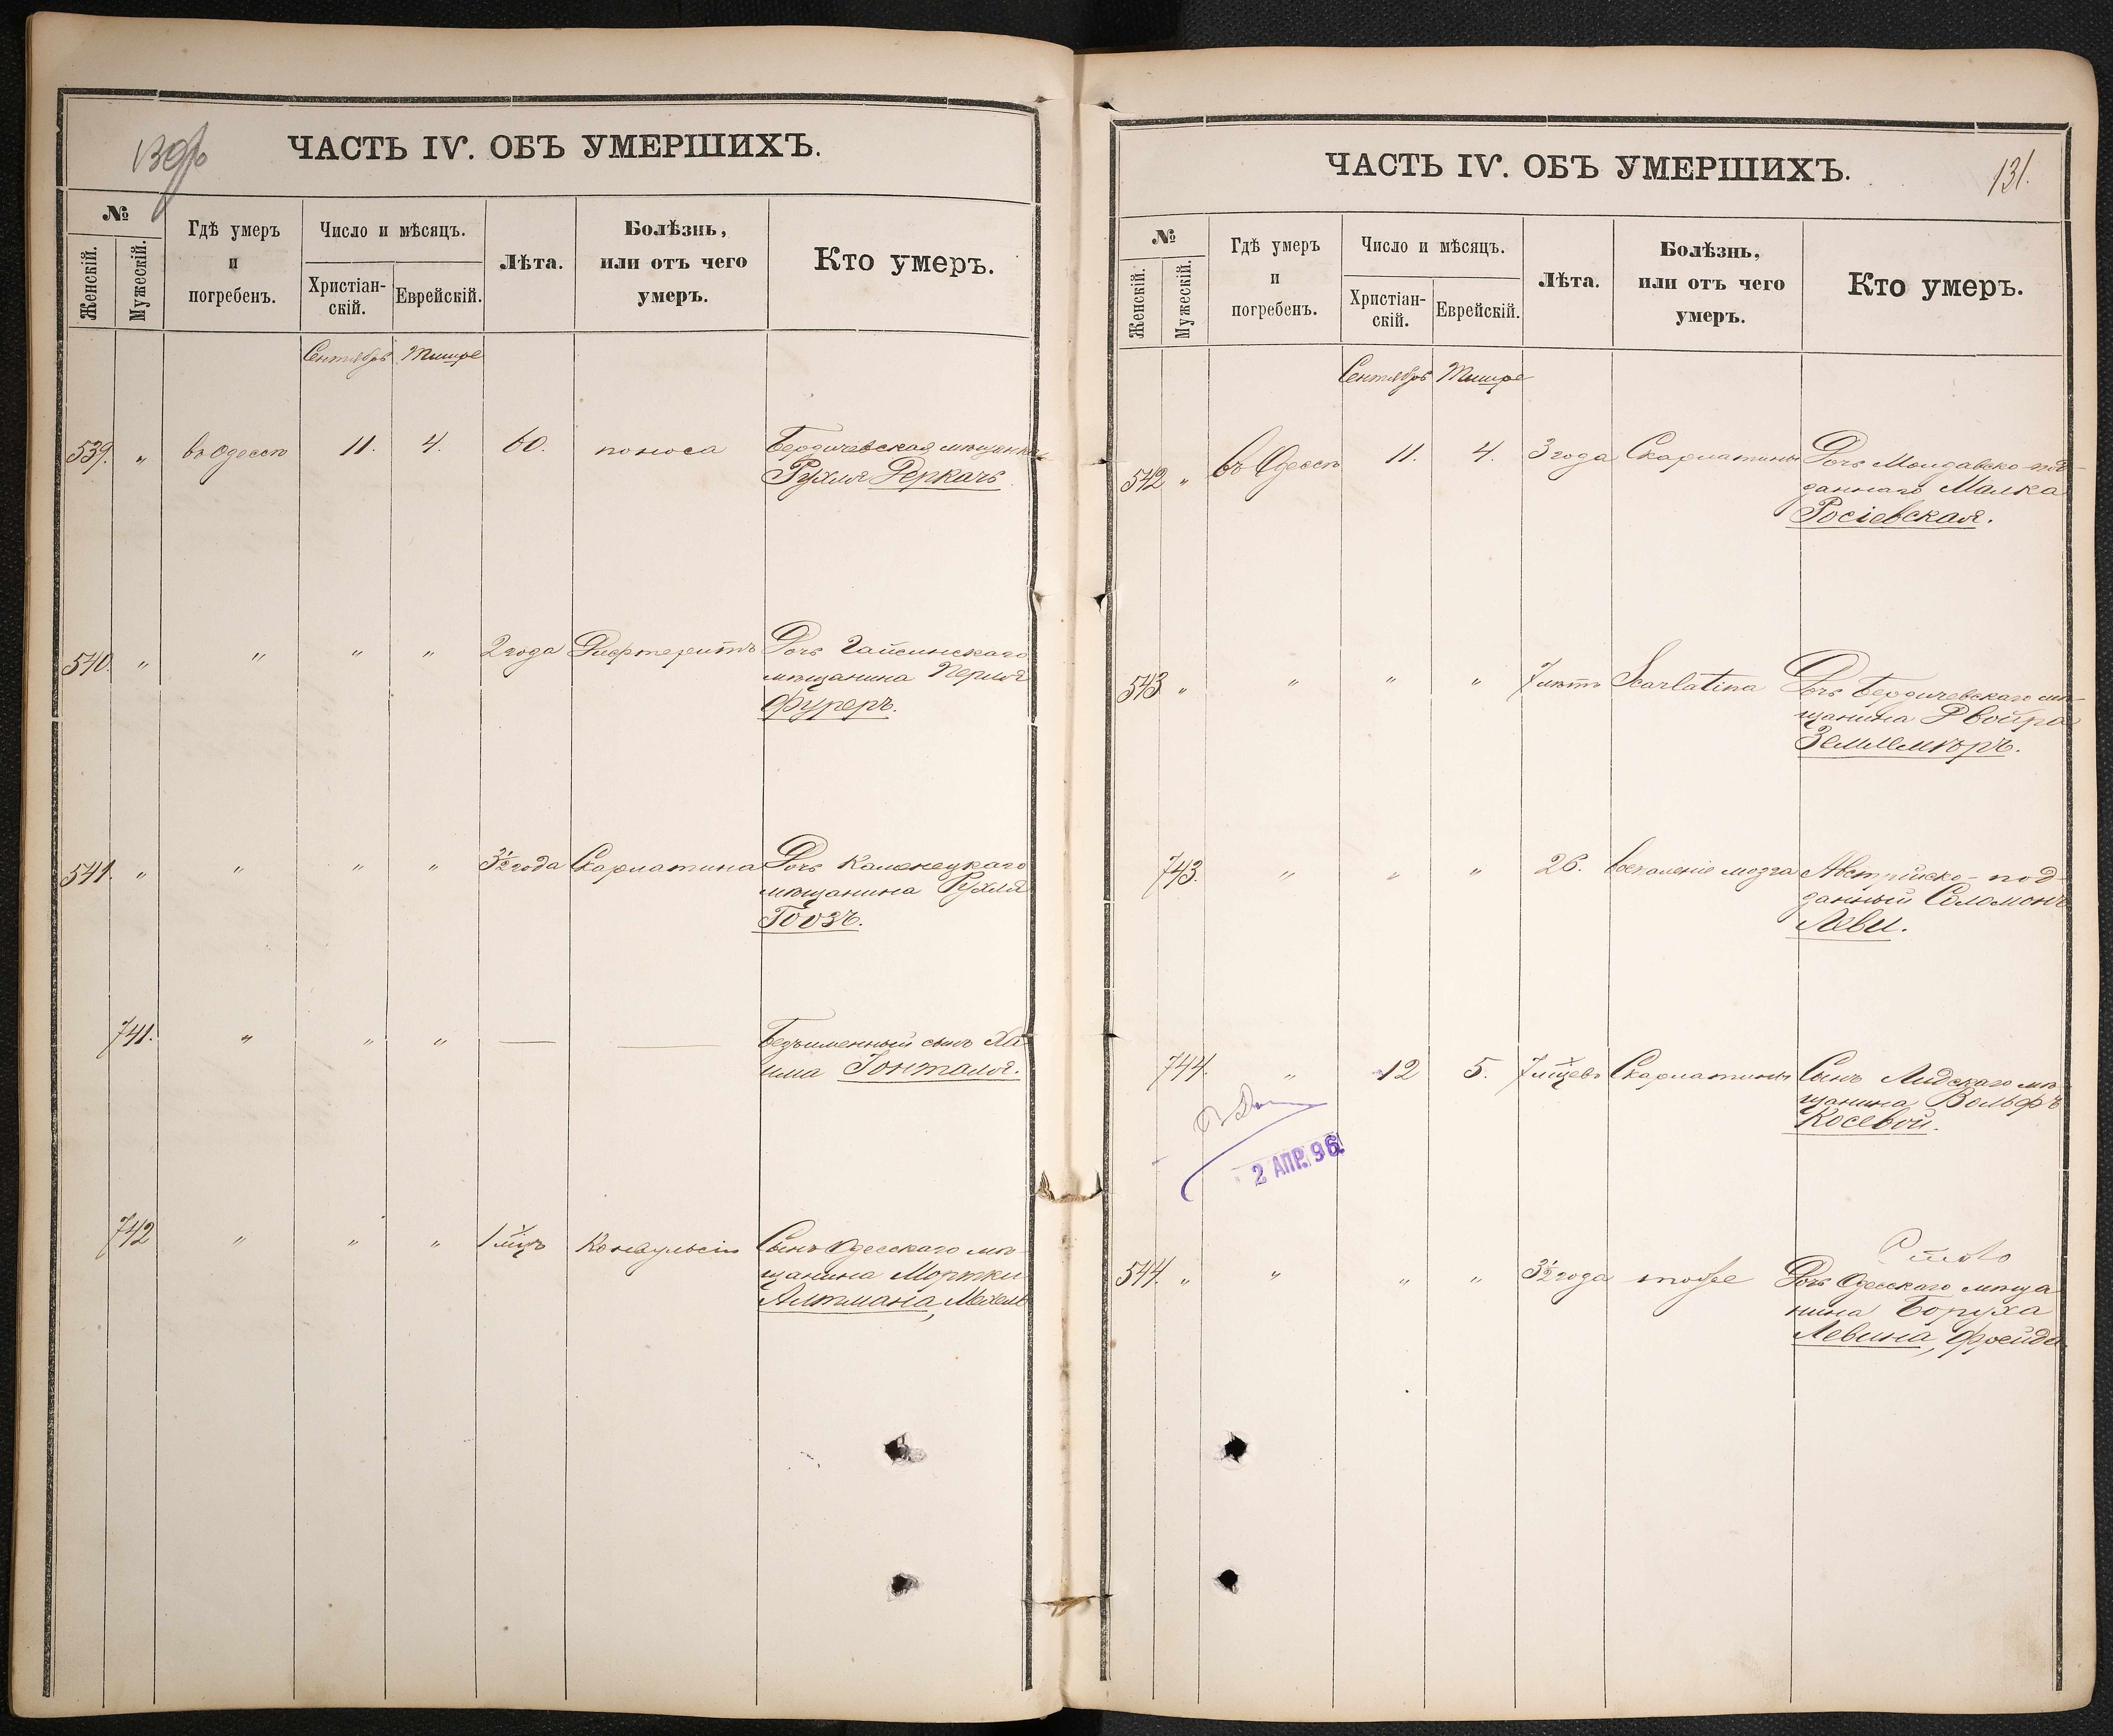 ЧАСТЬ IV. ОБЪ УМЕРШИХЪ.
№
Женскій.
Мужескій.
Гдѣ умеръ
и
погребенъ.
Число и мѣсяцъ.
Христіан-
скій.
Еврейскій.
Лѣта.
Болѣзнь,
или отъ чего
умеръ.
Кто умеръ.
Сентябрь Тишре
539. " въ Одессѣ 11. 4. 60. поноса Бердичевская мѣщанка
Рухля Деркачъ.
540. " " " " 2 года Дифтеритъ Дочь Гайсинскаго
мѣщанина Перля
Фуреръ.
541. " " " " 3½ года Скарлатина Дочь Каменецкаго
мѣщанина Рухля
Гоозъ.
741. " " " — — Безъименный сынъ Ха-
има Гонталя.
742 " " " 1 мцъ Конвульсіи Сынъ Одесскаго мѣ-
щанина Мортки
Альтмана, Мехель
ЧАСТЬ IV. ОБЪ УМЕРШИХЪ.
131.
№
Женскій.
Мужескій.
Гдѣ умеръ
и
погребенъ.
Число и мѣсяцъ.
Христіан-
скій.
Еврейскій.
Лѣта.
Болѣзнь,
или отъ чего
умеръ.
Кто умеръ.
Сентябрь Тишре
542 " въ Одессѣ 11. 4. 3 года Скарлатины Дочь Молдавско-под-
даннаго Малка
Росіевская.
543 " " " " 7 лѣтъ Scarlatina Дочь Бердичевскаго мѣ-
щанина Двойра
Землемѣръ.
743. " " " 26. воспаленіе мозга Австрійско-под-
данный Соломонъ
Леви.
744. " 12 5. 7 мцевъ Скарлатины Сынъ Лидскаго мѣ-
щанина Вольфъ
Косевой.
2 АПР. 96
544. " " " " 3½ года тоже Дочь Одесскаго мѣща-
нина Боруха
Левина, Фрейда